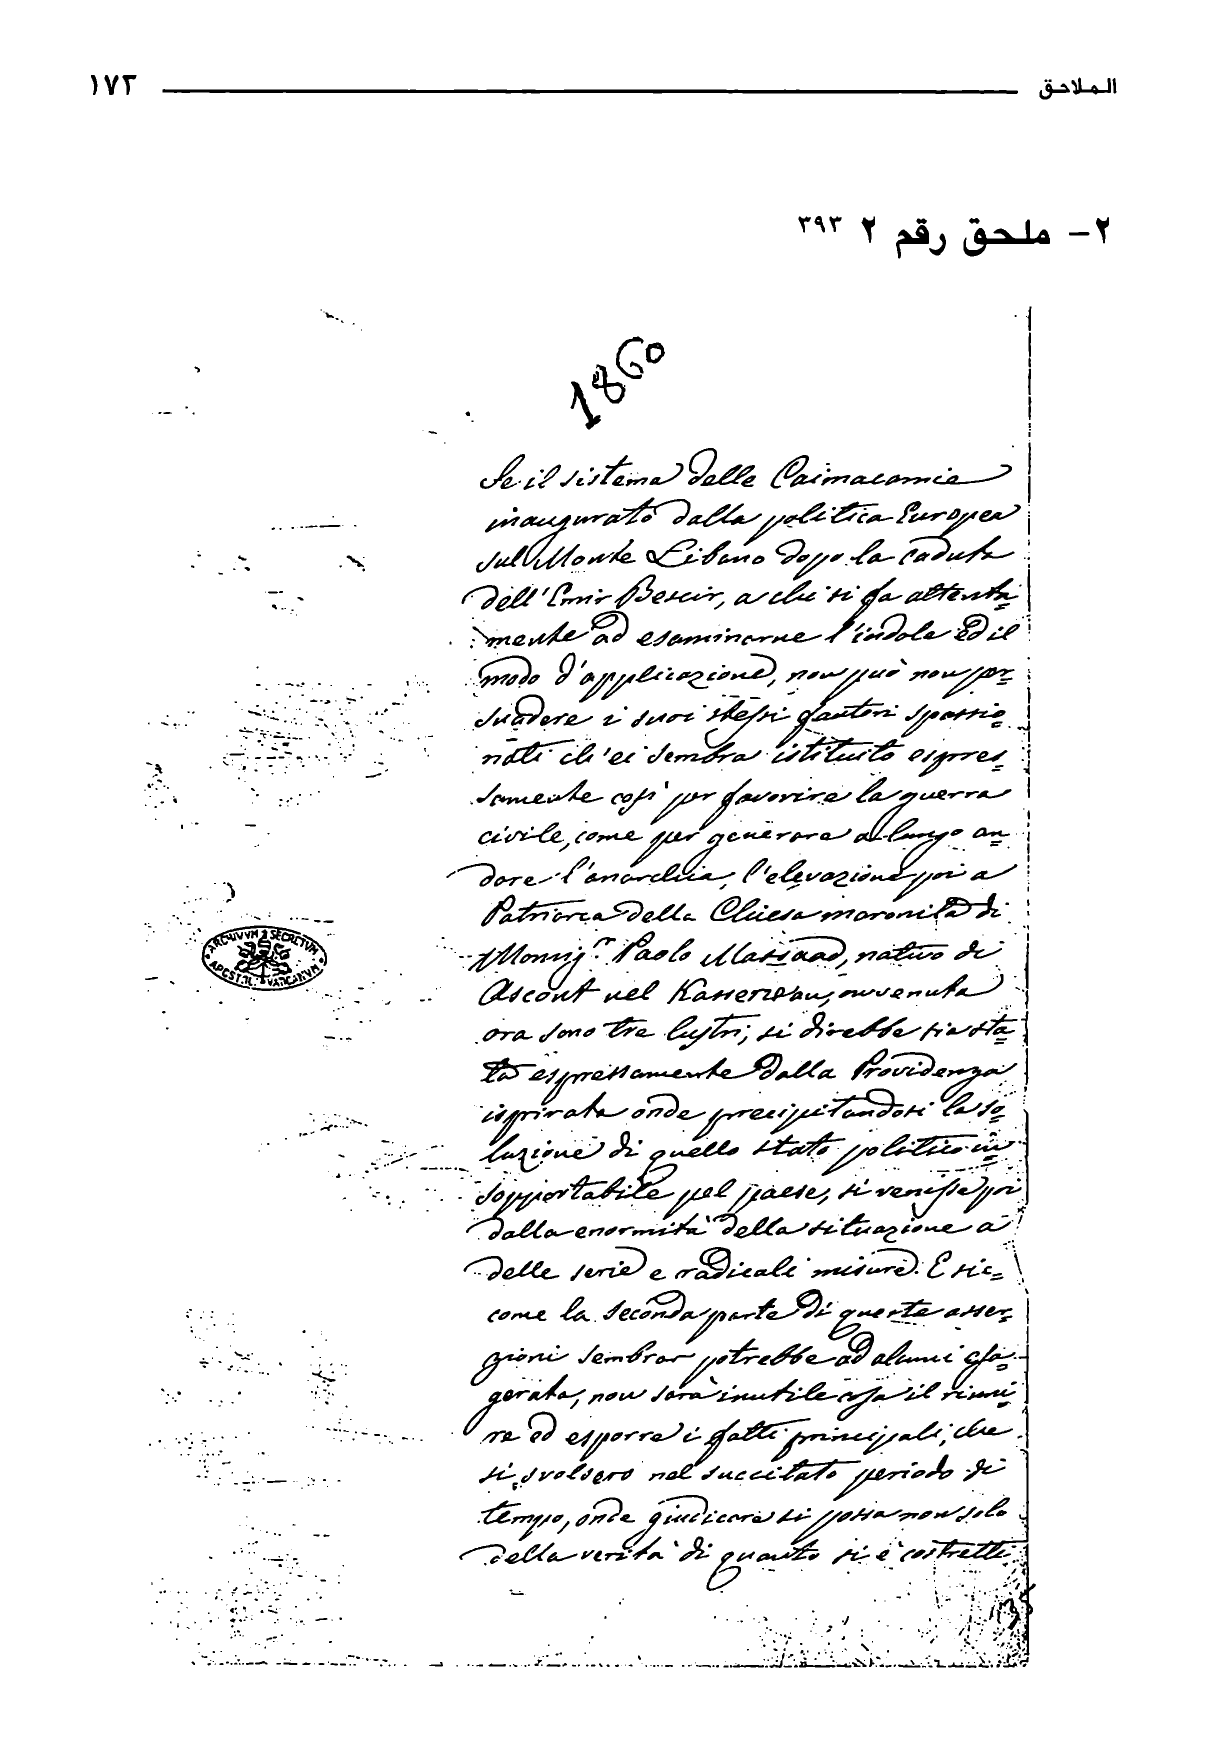 الملاحق
١٧٣
٢- ملحق رقم ٢ ٣٩٣
1860
Se il sistema delle Caimacamie
inaugurato dalla politica Europea
sul Monte Libano dopo la caduta
dell'Emir Bescir, a chi si fa attenta=
mente ad esaminarne l'indole ed il
modo d'applicazione, non può non per=
suadere i suoi stessi fautori spassio=
nati ch'ei sembra istituito espres=
samente così per favorire la guerra
civile, come per generare a lungo an=
dare l'anarchia, l'elevazione poi a
Patriarca della Chiesa maronita di
Monsig.r Paolo Massaad, nativo di
Ascout nel Kasserwan, avvenuta
ora sono tre lustri, si direbbe sia sta=
ta espressamente dalla Providenza
ispirata onde precipitandosi la so=
luzione di quello stato politico in=
sopportabile pel paese, si venisse poi
dalla enormità della situazione a
delle serie e radicali misure. E sic=
come la seconda parte di queste asser=
zioni sembrar potrebbe ad alcuni esa=
gerata, non sarà inutile cosa il riuni=
re ed esporre i fatti principali, che
si svolsero nel succitato periodo di
tempo, onde giudicare si possa non solo
della verità di quanto si è costretti
ARCHIVVM SECRETVM
APOSTOL. VATICANVM